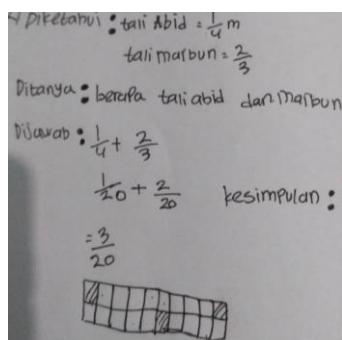 Diketahui : tali Abid = 1/4 m
tali marbun = 2/3
Ditanya : berapa tali abid dan marbun
Dijawab : 1/4 + 2/3
1/20 + 2/20 kesimpulan :
= 3/20